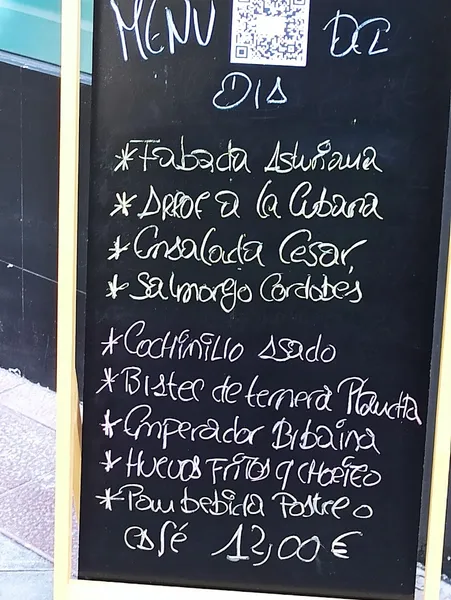 MENU DEL
DIA
*Fabada Asturiana
*ARROZ a la Cubana
*Ensalada Cesar
*Salmorejo Cordobes
*COCHINILLO ASADO
*Bistec de ternera Plancha
*Emperador Bilbaina
*HUEVOS FRITOS y CHORIZO
*Pan bebida Postre o
café 12,00€